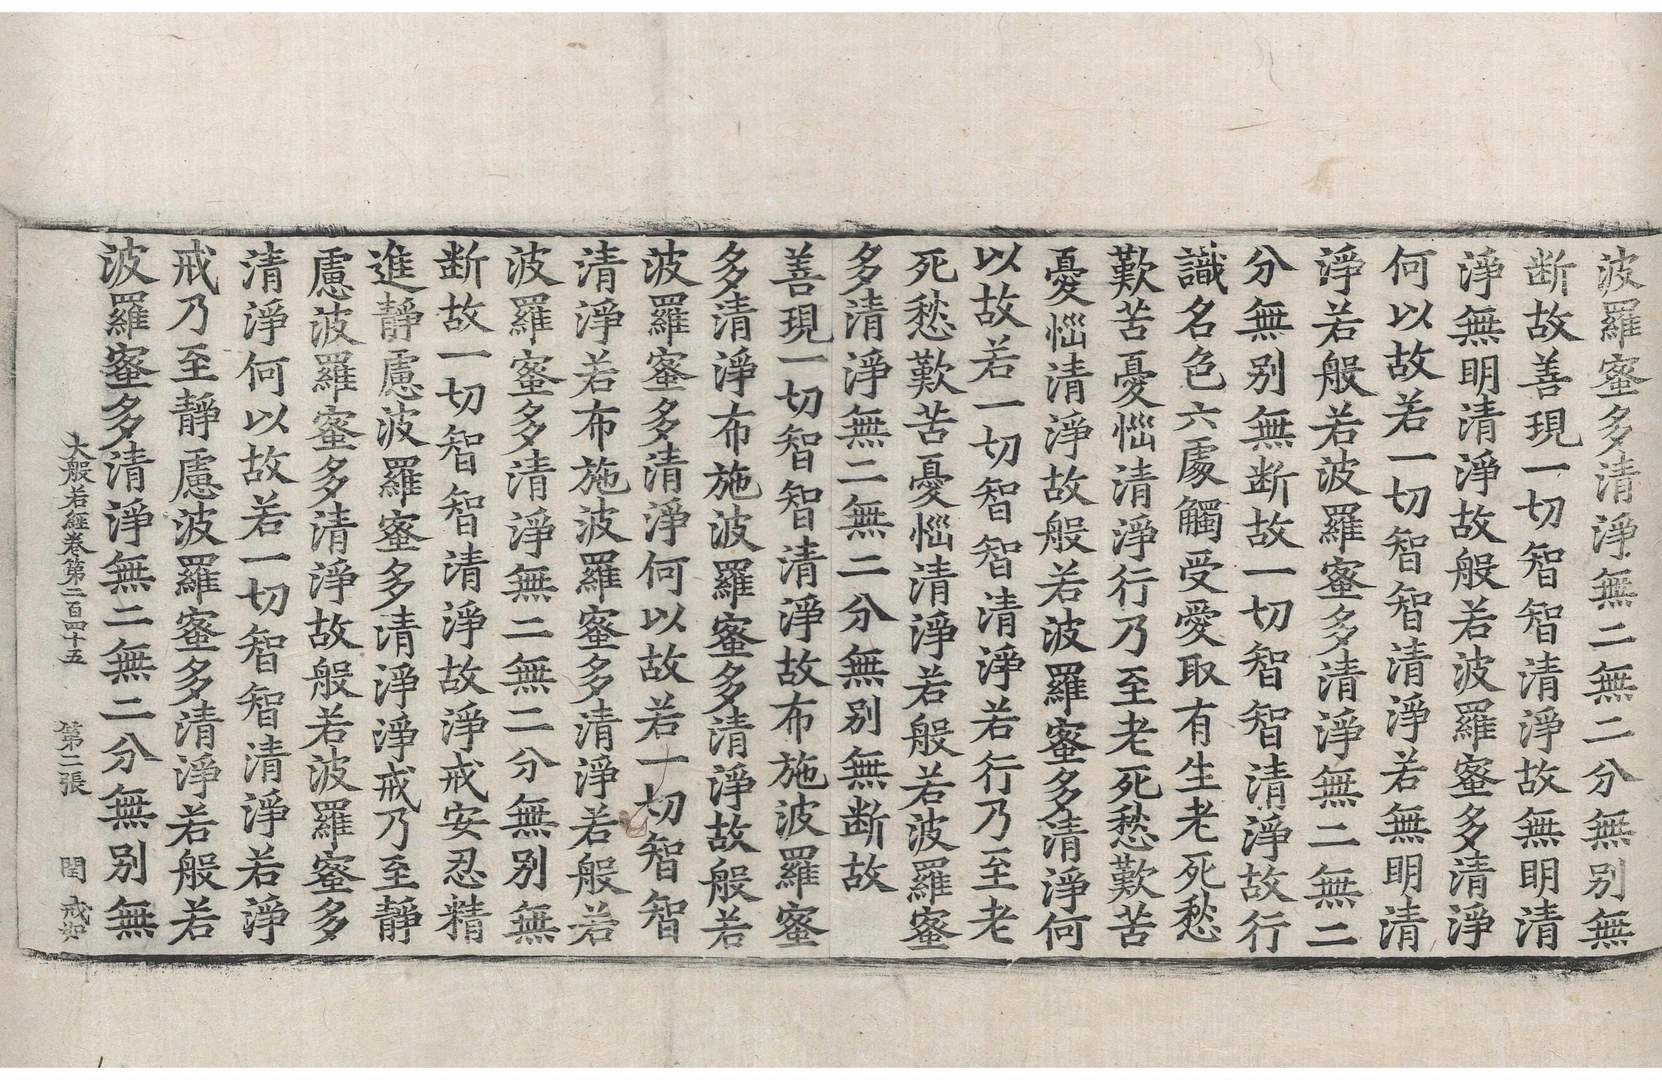 波羅蜜多清淨無二無二分無别無
断故善現一切智智清淨故無明清
淨無明清淨故般若波羅蜜多清淨
何以故若一切智智清淨若無明清
淨若般若波羅蜜多清淨無二無二
分無别無断故一切智智清淨故行
識名色六處觸受愛取有生老死愁
歎苦憂惱清淨行乃至老死愁歎苦
憂惱清淨故般若波羅蜜多清淨何
以故若一切智智清淨若行乃至老
死愁歎苦憂惱清淨若般若波羅蜜
多清淨無二無二分無别無断故
善現一切智智清淨故布施波羅蜜
多清淨布施波羅蜜多清淨故般若
波羅蜜多清淨何以故若一切智智
清淨若布施波羅蜜多清淨若般若
波羅蜜多清淨無二無二分無别無
断故一切智智清淨故淨戒安忍精
進靜慮波羅蜜多清淨淨戒乃至靜
慮波羅蜜多清淨故般若波羅蜜多
清淨何以故若一切智智清淨若淨
戒乃至靜慮波羅蜜多清淨若般若
波羅蜜多清淨無二無二分無别無
大般若經卷第二百四十五 第二張 閏 戒